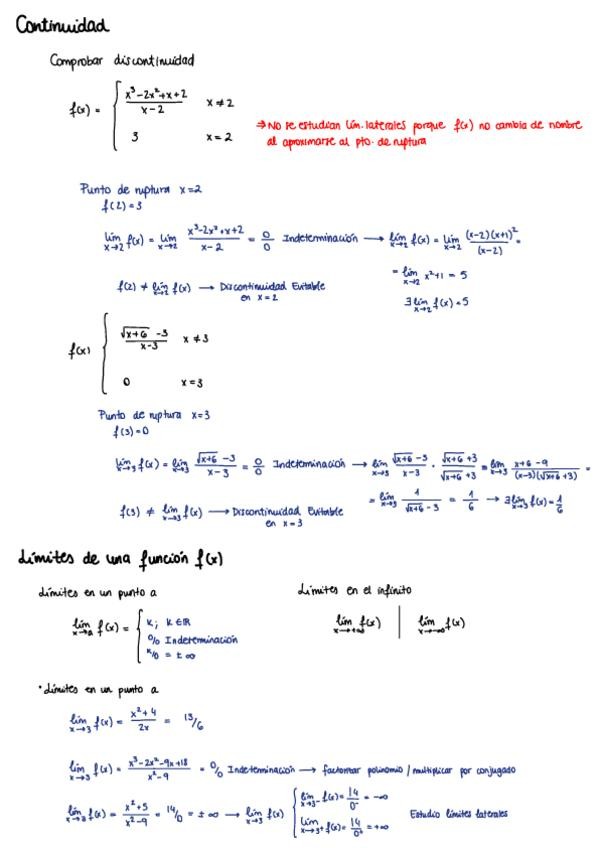 Continuidad
Comprobar discontinuidad
f(x) = { x³-2x²+x+2 / x-2   x ≠ 2
3   x = 2
⇒ No se estudian lím. laterales porque f(x) no cambia de nombre
al aproximarse al pto. de ruptura
Punto de ruptura x=2
f(2) = 3
lím x→2 f(x) = lím x→2 x³-2x²+x+2 / x-2 = 0/0 Indeterminación → lím x→2 f(x) = lím x→2 (x-2)(x+1)² / (x-2) =
= lím x→2 x²+1 = 5
f(2) ≠ lím x→2 f(x) → Discontinuidad Evitable
en x=2
∃ lím x→2 f(x) = 5
f(x) { √x+6 -3 / x-3   x ≠ 3
0   x = 3
Punto de ruptura x=3
f(3) = 0
lím x→3 f(x) = lím x→3 √x+6 -3 / x-3 = 0/0 Indeterminación → lím x→3 √x+6 -3 / x-3 · √x+6 +3 / √x+6 +3 = lím x→3 x+6-9 / (x-3)(√x+6 +3) =
= lím x→3 1 / √x+6 -3 = 1/6 → ∃ lím x→3 f(x) = 1/6
f(3) ≠ lím x→3 f(x) → Discontinuidad Evitable
en x=3
Límites de una función f(x)
Límites en un punto a   Límites en el infinito
lím x→a f(x) = { K; K∈ℝ
0/0 Indeterminación
K/0 = ± ∞
lím x→+∞ f(x) | lím x→-∞ f(x)
· Límites en un punto a
lím x→3 f(x) = x²+4 / 2x = 13/6
lím x→3 f(x) = x³-2x²-9x+18 / x²-9 = 0/0 Indeterminación → factorizar polinomio / multiplicar por conjugado
lím x→3 f(x) = x²+5 / x²-9 = 14/0 = ± ∞ → lím x→3 f(x) { lím x→3⁻ f(x) = 14/0⁻ = -∞
lím x→3⁺ f(x) = 14/0⁺ = +∞
Estudio límites laterales